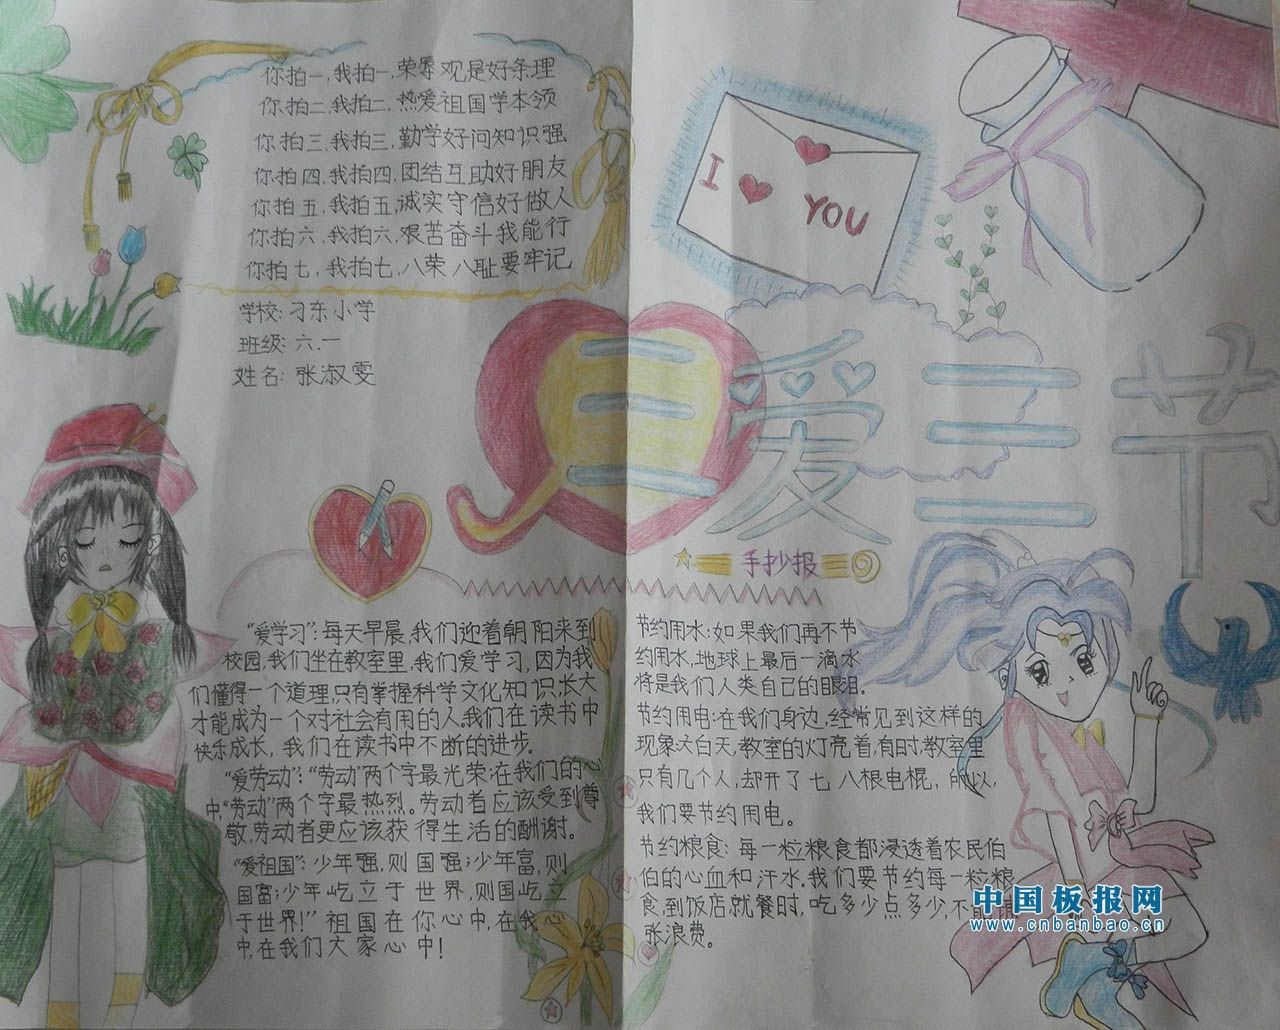 你拍一,我拍一,荣辱观是好条理
你拍二,我拍二,热爱祖国学本领
你拍三,我拍三,勤学好问知识强
你拍四,我拍四,团结互助好朋友
你拍五,我拍五,诚实守信好做人
你拍六,我拍六,艰苦奋斗我能行
你拍七,我拍七,八荣八耻要牢记
学校:刁东小学
班级:六.一
姓名:张淑雯
I YOU
三爱三节
手抄报
“爱学习”:每天早晨,我们迎着朝阳来到
校园,我们坐在教室里,我们爱学习,因为我
们懂得一个道理,只有掌握科学文化知识,长大
才能成为一个对社会有用的人,我们在读书中
快乐成长,我们在读书中不断的进步。
“爱劳动”:“劳动”两个字最光荣:在我们的心
中,“劳动”两个字最热烈。劳动者应该受到尊
敬,劳动者更应该获得生活的酬谢。
“爱祖国”:少年强,则国强;少年富,则
国富;少年屹立于世界,则国屹立
于世界!”祖国在你心中,在我心
中,在我们大家心中!
节约用水:如果我们再不节
约用水,地球上最后一滴水
将是我们人类自己的眼泪。
节约用电:在我们身边,经常见到这样的
现象大白天,教室的灯亮着,有时,教室里
只有几个人,却开了七八根电棍,所以,
我们要节约用电。
节约粮食:每一粒粮食都浸透着农民伯
伯的心血和汗水。我们要节约每一粒粮
食,到饭店就餐时,吃多少点多少,不能铺
张浪费。
中国板报网
www.cnbanbao.cn